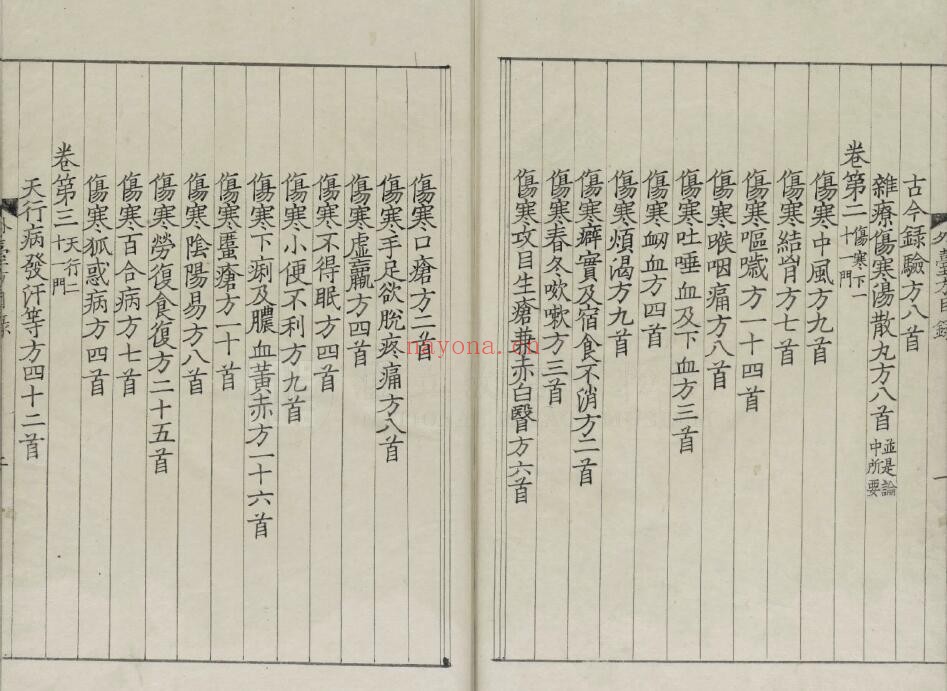 古今録驗方八首
雜療傷寒湯散丸方八首 並是論中所要
卷第二 傷寒下一十二門
傷寒中風方九首
傷寒結胷方七首
傷寒嘔噦方一十四首
傷寒喉咽痛方八首
傷寒吐唾血及下血方三首
傷寒衂血方四首
傷寒煩渴方九首
傷寒癖實及宿食不消方二首
傷寒春冬欬嗽方三首
傷寒攻目生瘡兼赤白瞖方六首
傷寒口瘡方二首
傷寒手足欲脫疼痛方八首
傷寒虛羸方四首
傷寒不得眠方四首
傷寒小便不利方九首
傷寒下痢及膿血黃赤方一十六首
傷寒䘌瘡方一十首
傷寒陰陽易方八首
傷寒勞復食復方二十五首
傷寒百合病方七首
傷寒狐惑病方四首
卷第三 天行二十一門
天行病發汗等方四十二首
nayona.cn